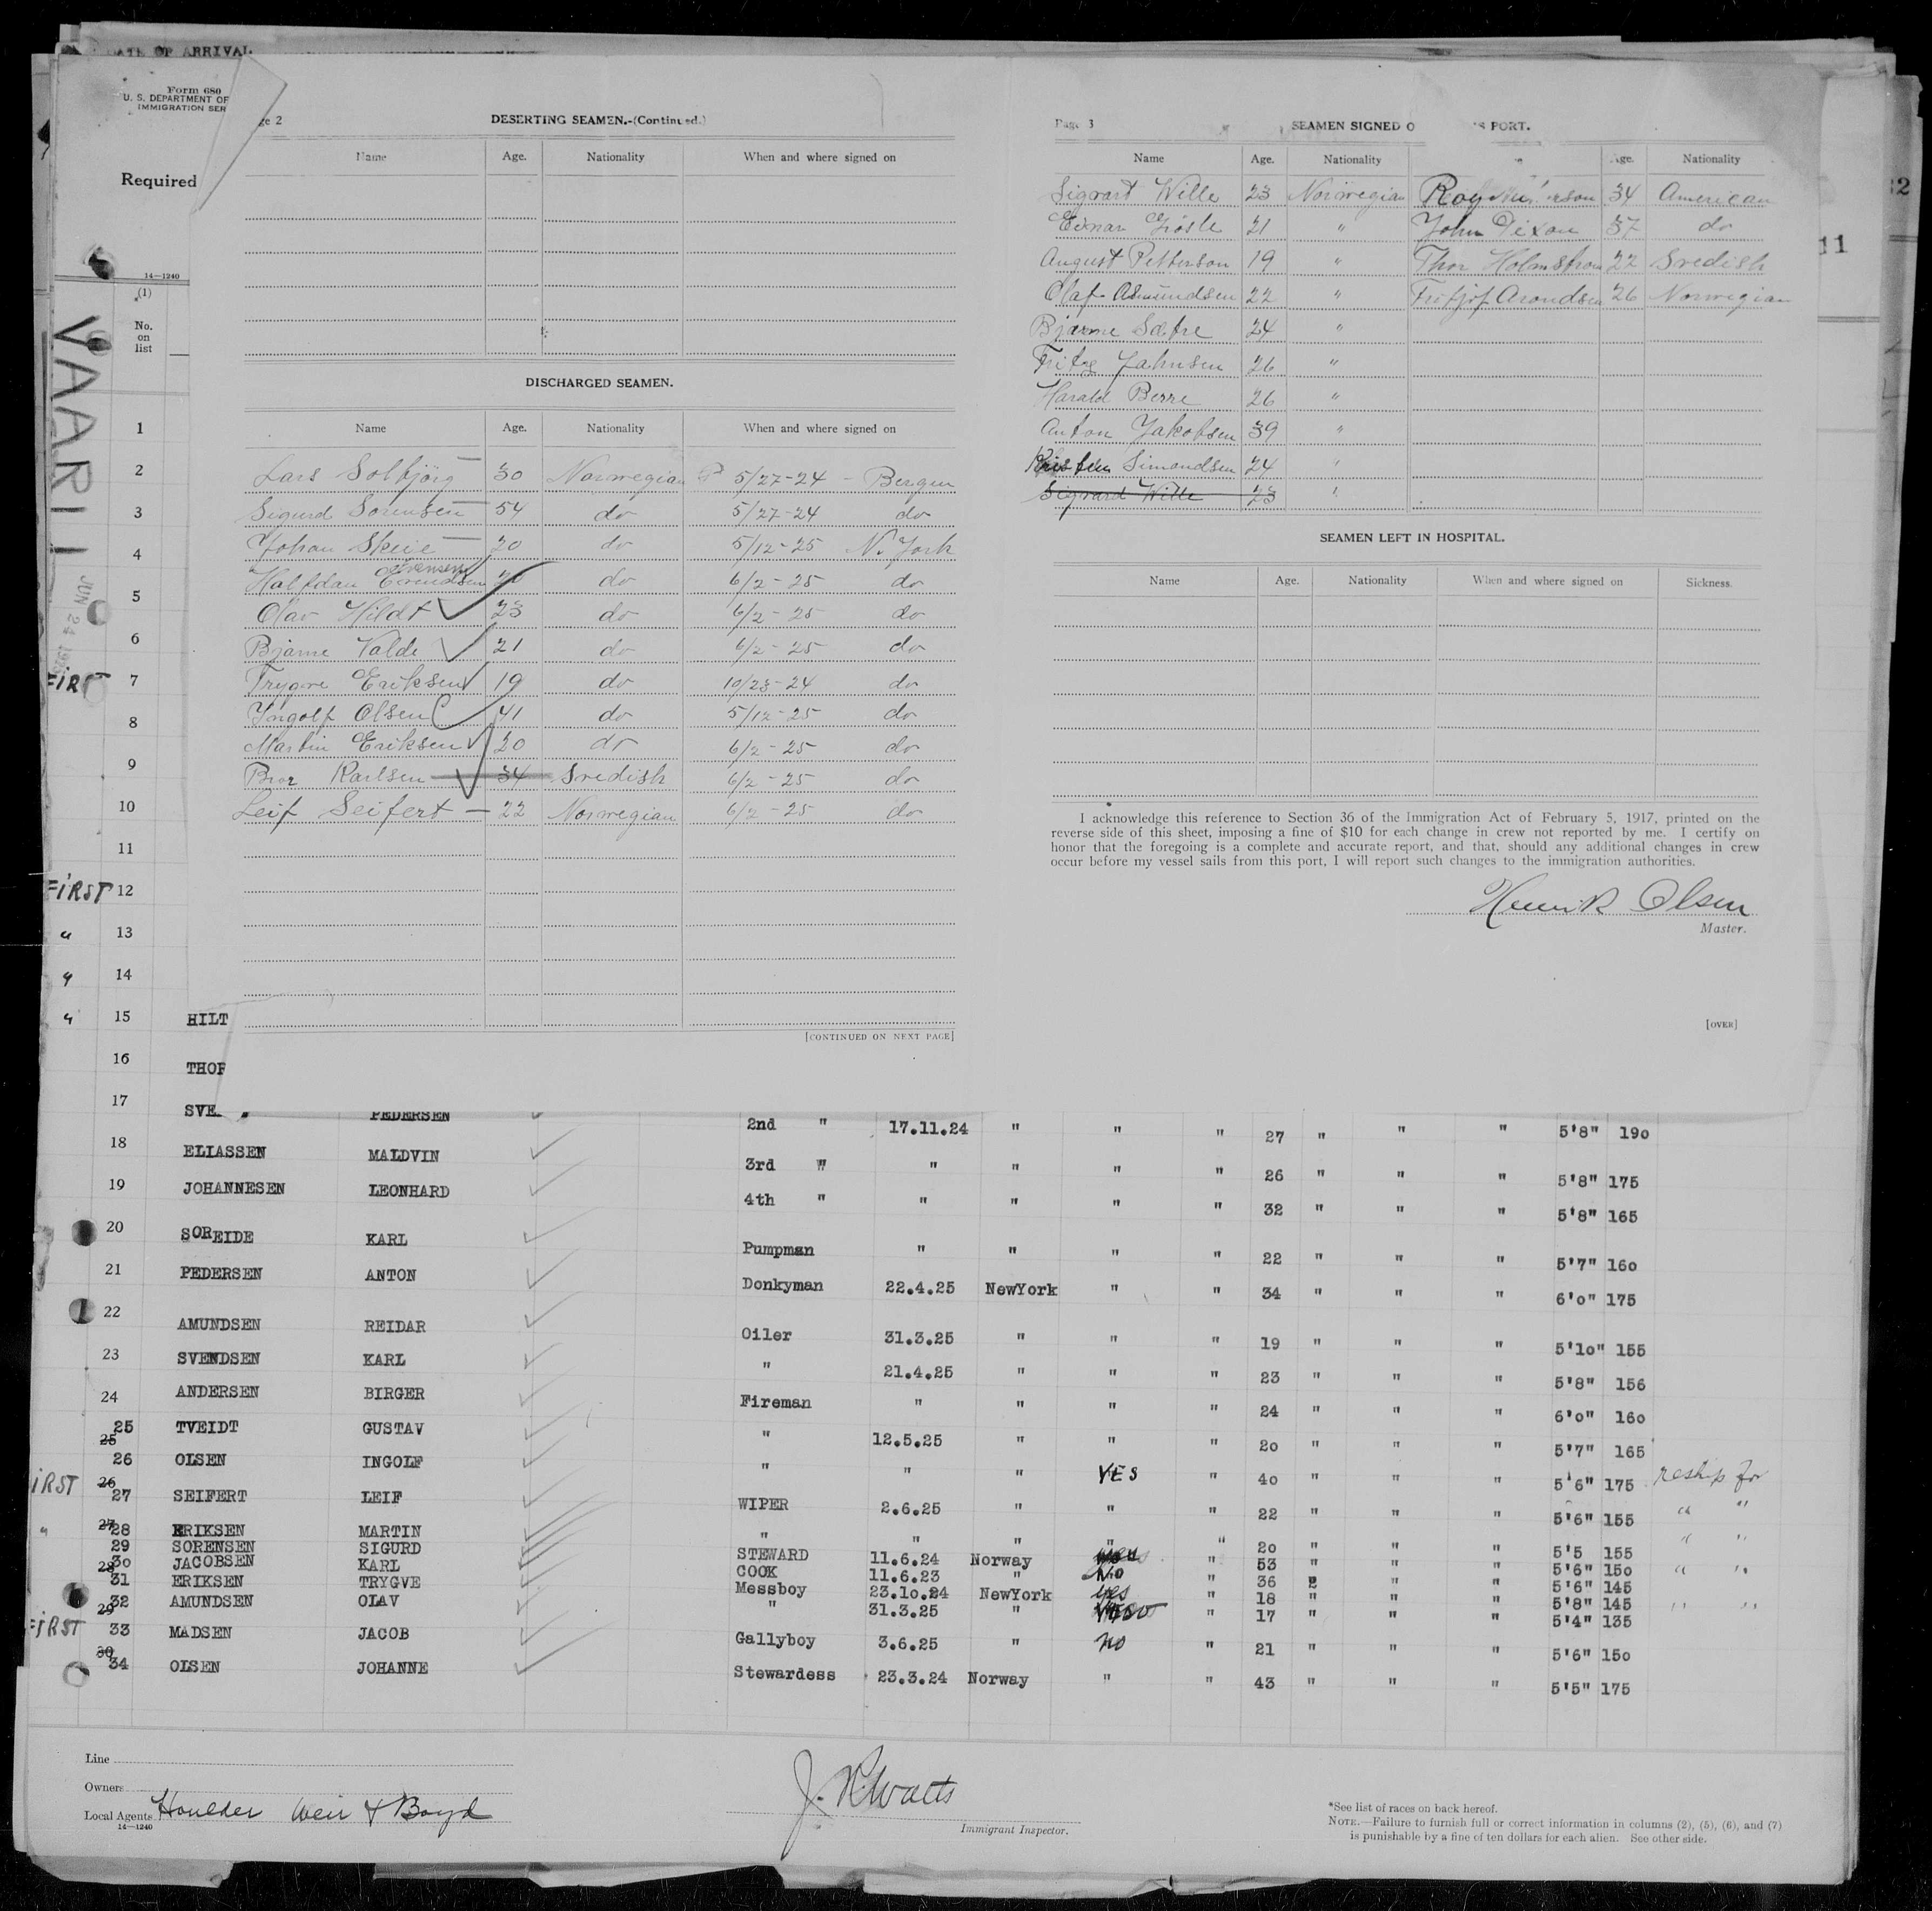 DATE OF ARRIVAL
Form 680
U. S. DEPARTMENT OF
IMMIGRATION SER
Required
14—1240
(1)
No.
on
list
VAARLI
JUN 24
ge 2
DESERTING SEAMEN.-(Continued.)
Name Age. Nationality When and where signed on
DISCHARGED SEAMEN.
Name Age. Nationality When and where signed on
Lars Solbjörg 30 Norwegian 5/27-24 - Bergen
Sigurd Sorensen 54 do 5/27-24 do
Johan Skeie 20 do 5/12-25 N. York
Halfdan Evensen do 6/2-25 do
Olav Hildt 23 do 6/2-25 do
Bjarne Valde 21 do 6/2-25 do
Trygve Eriksen 19 do 10/23-24 do
Yngolf Olsen 41 do 5/12-25 do
Martin Eriksen 20 do 6/2-25 do
Bror Karlsen 34 Svedish 6/2-25 do
Leif Seifert - 22 Norwegian 6/2-25 do
[CONTINUED ON NEXT PAGE]
Page 3
SEAMEN SIGNED O 'S PORT.
Name Age. Nationality Age. Nationality
Sigvart Wille 23 Norwegian Roy 34 American
Einar 21 " John Dixon 37 do
August Petterson 19 " Thor Holmstrom 22 Svedish
Olaf Asmundsen 22 " Fritjof Arondsen 26 Norwegian
Bjarne Sætre 24 "
Fritz Jahnsen 26 "
Harald Berre 26 "
Anton Jakobsen 39 "
Simondsen 24 "
Sigvard Wille 23 "
SEAMEN LEFT IN HOSPITAL.
Name Age. Nationality When and where signed on Sickness.
I acknowledge this reference to Section 36 of the Immigration Act of February 5, 1917, printed on the
reverse side of this sheet, imposing a fine of $10 for each change in crew not reported by me. I certify on
honor that the foregoing is a complete and accurate report, and that, should any additional changes in crew
occur before my vessel sails from this port, I will report such changes to the immigration authorities.
Henrik Olsen
Master.
[OVER]
11
1
2
3
4
5
6
FIRST 7
8
9
10
11
FIRST 12
" 13
" 14
" 15 HILT
16 THOF
17 SVE PEDERSEN 2nd " 17.11.24 " " " 27 " " " 5'8" 190
18 ELIASSEN MALDVIN 3rd " " " " " 26 " " " 5'8" 175
19 JOHANNESEN LEONHARD 4th " " " " " 32 " " " 5'8" 165
20 SOREIDE KARL Pumpman " " " " 22 " " " 5'7" 160
21 PEDERSEN ANTON Donkyman 22.4.25 NewYork " " 34 " " " 6'0" 175
22 AMUNDSEN REIDAR Oiler 31.3.25 " " " 19 " " " 5'10" 155
23 SVENDSEN KARL " 21.4.25 " " " 23 " " " 5'8" 156
24 ANDERSEN BIRGER Fireman " " " " 24 " " " 6'0" 160
25 25 TVEIDT GUSTAV " 12.5.25 " " " 20 " " " 5'7" 165
26 OLSEN INGOLF " " " YES " 40 " " " 5'6" 175 reship for
FIRST 26 27 SEIFERT LEIF WIPER 2.6.25 " " " 22 " " " 5'6" 155 " "
" 27 28 ERIKSEN MARTIN " " " " " 20 " " " 5'5 155 " "
29 SORENSEN SIGURD STEWARD 11.6.24 Norway " 53 " " " 5'6" 150 " "
28 30 JACOBSEN KARL COOK 11.6.23 " No " 36 " " 5'6" 145
31 ERIKSEN TRYGVE Messboy 23.10.24 NewYork yes " 18 " " " 5'8" 145 " "
29 32 AMUNDSEN OLAV " 31.3.25 " " 17 " " " 5'4" 135
FIRST 33 MADSEN JACOB Gallyboy 3.6.25 " no " 21 " " " 5'6" 150
30 34 OLSEN JOHANNE Stewardess 23.3.24 Norway " " 43 " " " 5'5" 175
Line
Owners
Local Agents Houlder Weir & Boyd
14—1240
J. R. Watts
Immigrant Inspector.
*See list of races on back hereof.
NOTE.—Failure to furnish full or correct information in columns (2), (5), (6), and (7)
is punishable by a fine of ten dollars for each alien. See other side.